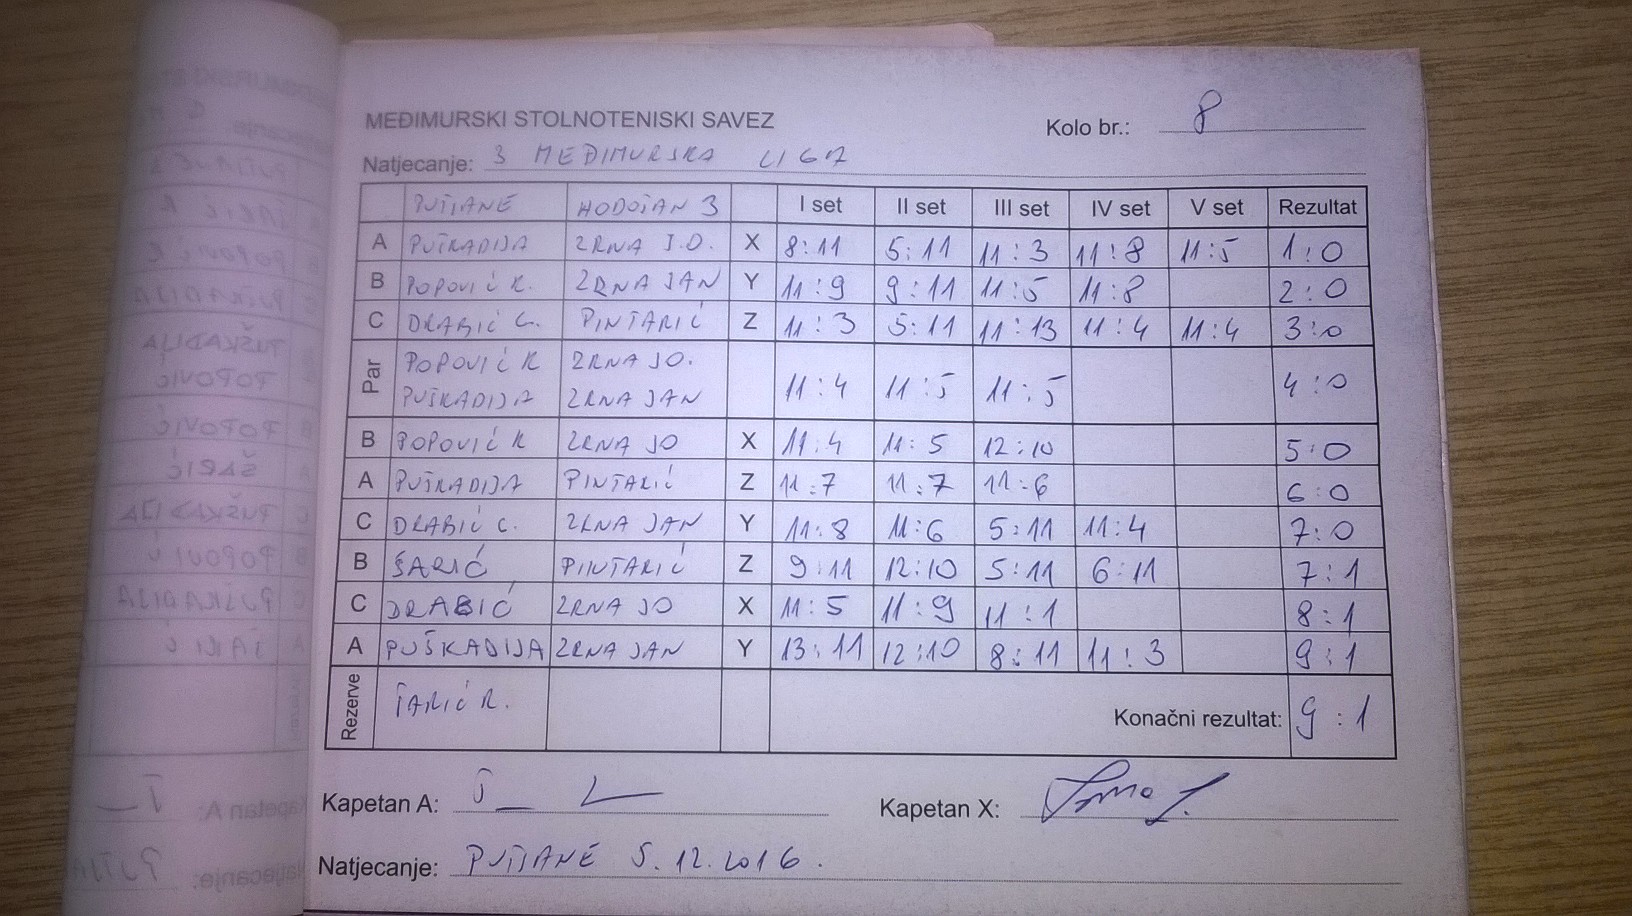 MEĐIMURSKI STOLNOTENISKI SAVEZ
Kolo br.: 8
Natjecanje: 3 MEĐIMURSKA LIGA
PUŠĆANE HODOŠAN 3 I set II set III set IV set V set Rezultat
A PUŠKADIJA ZRNA J.O. X 8:11 5:11 11:3 11:8 11:5 1:0
B POPOVIĆ K. ZRNA JAN Y 11:9 9:11 11:5 11:8 2:0
C DRABIĆ C. PINTARIĆ Z 11:3 5:11 11:13 11:4 11:4 3:0
Par POPOVIĆ K ZRNA JO.
PUŠKADIJA ZRNA JAN 11:4 11:5 11:5 4:0
B POPOVIĆ K ZRNA JO X 11:4 11:5 12:10 5:0
A PUŠKADIJA PINTARIĆ Z 11:7 11:7 11:6 6:0
C DRABIĆ C. ZRNA JAN Y 11:8 11:6 5:11 11:4 7:0
B ŠARIĆ PINTARIĆ Z 9:11 12:10 5:11 6:11 7:1
C DRABIĆ ZRNA JO X 11:5 11:9 11:1 8:1
A PUŠKADIJA ZRNA JAN Y 13:11 12:10 8:11 11:3 9:1
Rezerve ŠARIĆ R. Konačni rezultat: 9:1
Kapetan A: Kapetan X:
Natjecanje: PUŠĆANE 5.12.2016.